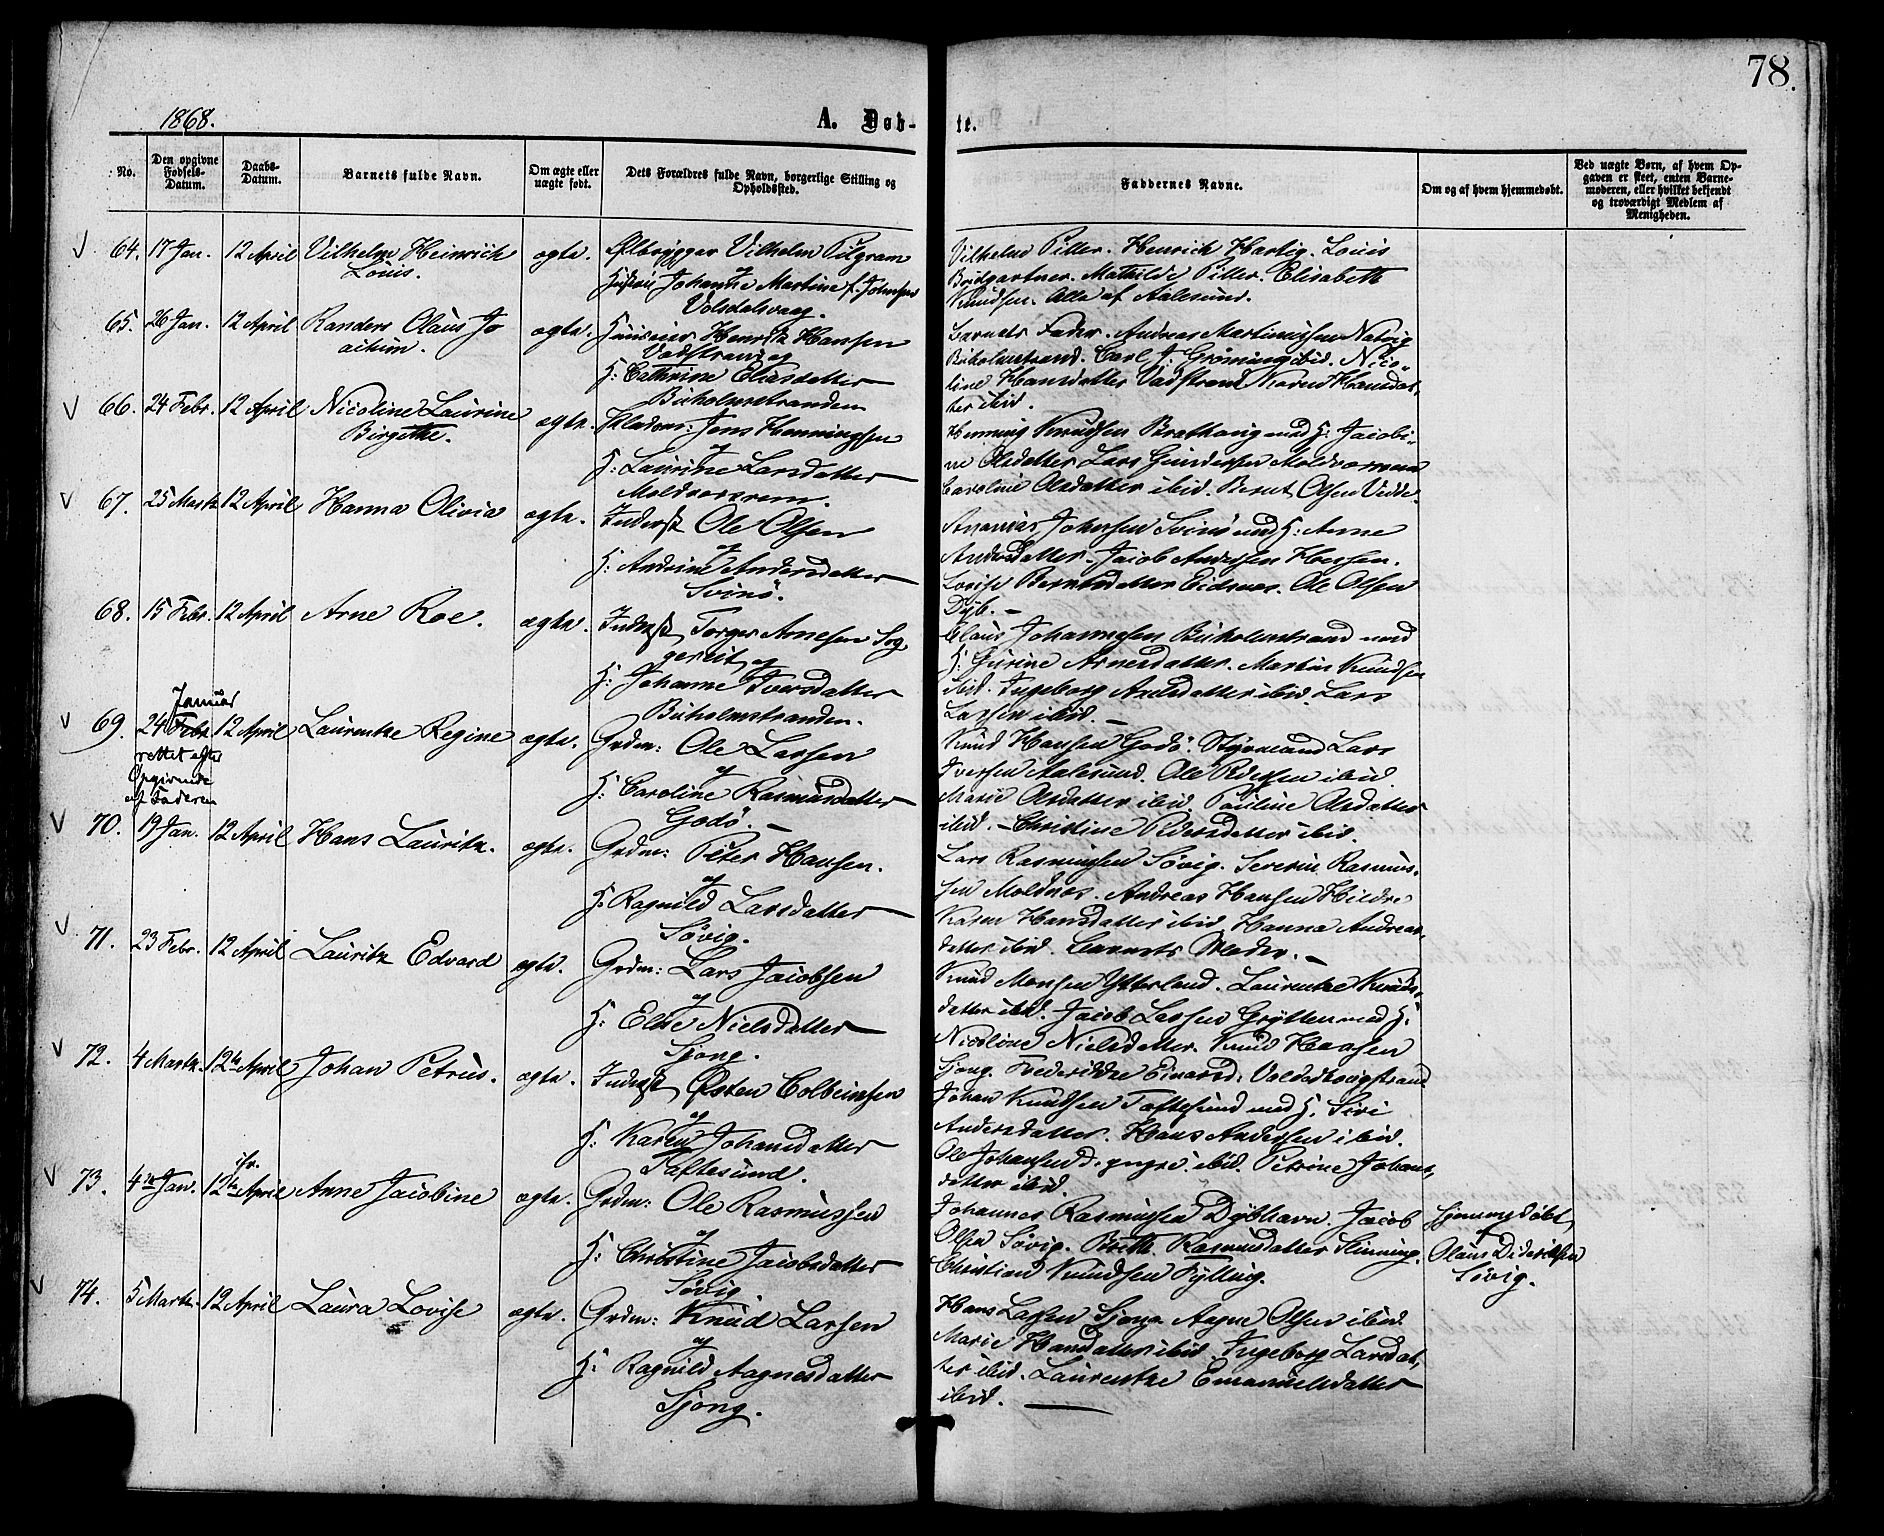 78.
1868.
A. Døb-
te.
No.
Den opgivne Fødsels-Datum.
Daabs-Datum.
Barnets fulde Navn.
Om ægte eller uægte født.
Dets Forældres fulde Navn, borgerlige Stilling og Opholdssted.
Faddernes Navne.
Om og af hvem hjemmedøbt.
Ved uægte Børn, af hvem Opgaven er skeet, enten Barnemoderen, eller hvilket bekjendt og troværdigt Medlem af Menigheden.
64. 17 Jan. 12 April Vilhelm Heinrich
Louis.
ægte. Ølbrygger Vilhelm Pilgram
og
Johanne Martine f. Johnsen
Volsdalsvaag.
Vilhelm Piller. Henrich Hartig. Louis
Mathilde Piller. Elisabeth
Knudsen. Alle af Aalesund.
65. 26 Jan. 12 April Randers Olaus Jo
achim.
ægte. Henrik Hansen
Vadstrand og
H: Cathrine Eliasdatter
Buholmstranden
Barnets Fader. Andreas Martinussen Natvig
Buholmstrand. Carl J. Grøning ibid. Nico-
line Hansdatter Vadstrand Karen Hansdat-
ter ibid.
66. 24 Febr. 12 April Nicoline Laurine
Birgethe.
ægte. Jens Henningsen
og
H: Laurine Larsdatter
Moldværsrem.
Henning Knudsen Brathaug med H: Jacobi-
ne Olsdatter Lars Gundersen Moldværsrem
Caroline Olsdatter ibid. Bernt Olsen Vedde.
67. 25 Marts 12 April Hanna Olivia
ægte. Inderst Ole Olsen
og
H: Andrine Andersdatter
Svinø.
Ananias Johnsen Svinø med H: Anne
Andersdatter. Jacob Andersen Hessen.
Lovise Berntsdatter Eidsnes. Ole Olsen
Dyb. —
68. 15 Febr. 12 April Arne Roe.
ægte. Inderst Torger Arnesen Sog
gereit og
H: Johanne Iversdatter
Buholmstranden.
Claus Johannesen Buholmstrand med
H: Gurine Arnesdatter. Martin Knudsen
ibid. Ingeborg Axelsdatter ibid. Lars
Larsen ibid. —
69. 24 Febr. Januar
rettet efter
Opgivende
af Faderen
12 April Laurentze Regine
ægte. Grdm: Ole Larsen
og
H: Caroline Rasmusdatter
Godø. —
Knud Hansen Godø. Styrmand Lars
Iversen Aalesund. Ole Pedersen ibid
Marie Olsdatter ibid. Pauline Olsdatter
ibid. — Christine Pedersdatter ibid.
70. 19 Jan. 12 April Hans Lauritz.
ægte. Grdm: Peter Hansen.
og
H: Ragnild Larsdatter
Søvig.
Lars Rasmussen Søvig. Severin Rasmus-
sen Moldnes. Andreas Hansen Hildre
Karen Hansdatter ibid. Hanna Andreas-
datter ibid. Barnets Moder. —
71. 23 Febr. 12 April Lauritz Edvard
ægte. Grdm: Lars Jacobsen
og
H: Else Nielsdatter
Sjong.
Knud Monsen Ytterland. Laurentze Knuds-
datter ibid. Jacob Larsen Grytten med H:
Nicoline Nielsdatter. Knud Hansen
Sjong. Frederikke Einarsd: Valderhougstrand
72. 4 Marts. 12te April Johan Petrus.
ægte. Inderst Østen Colbeinsen
og
H: Karen Johansdatter
Taftesund.
Johan Knudsen Taftesund med H. Siri
Andersdatter. Hans Andersen ibid.
Ole Johansen d. yngre ibid. Petrine Johans-
datter ibid.
73. 4de Jan. 12te April Anne Jacobine
ægte. Grdm: Ole Rasmussen
og
H: Christine Jacobsdatter
Søvig
Johannes Rasmussen Dybhavn. Jacob
Olsen Søvig. Berthe Rasmusdatter Slinning.
Christian Knudsen Fylling.
Hjemmedøbt
af
Olaus Dideriksen
Søvig.
74. 5 Marts. 12 April Laura Lovise
ægte. Grdm: Knud Larsen
og
H: Ragnild Aagnesdatter
Sjong.
Hans Larsen Sjong Aagne Olsen ibid
Marie Hansdatter ibid. Ingeborg Larsdat-
ter ibid. Laurentze Emanuelsdatter
ibid. —